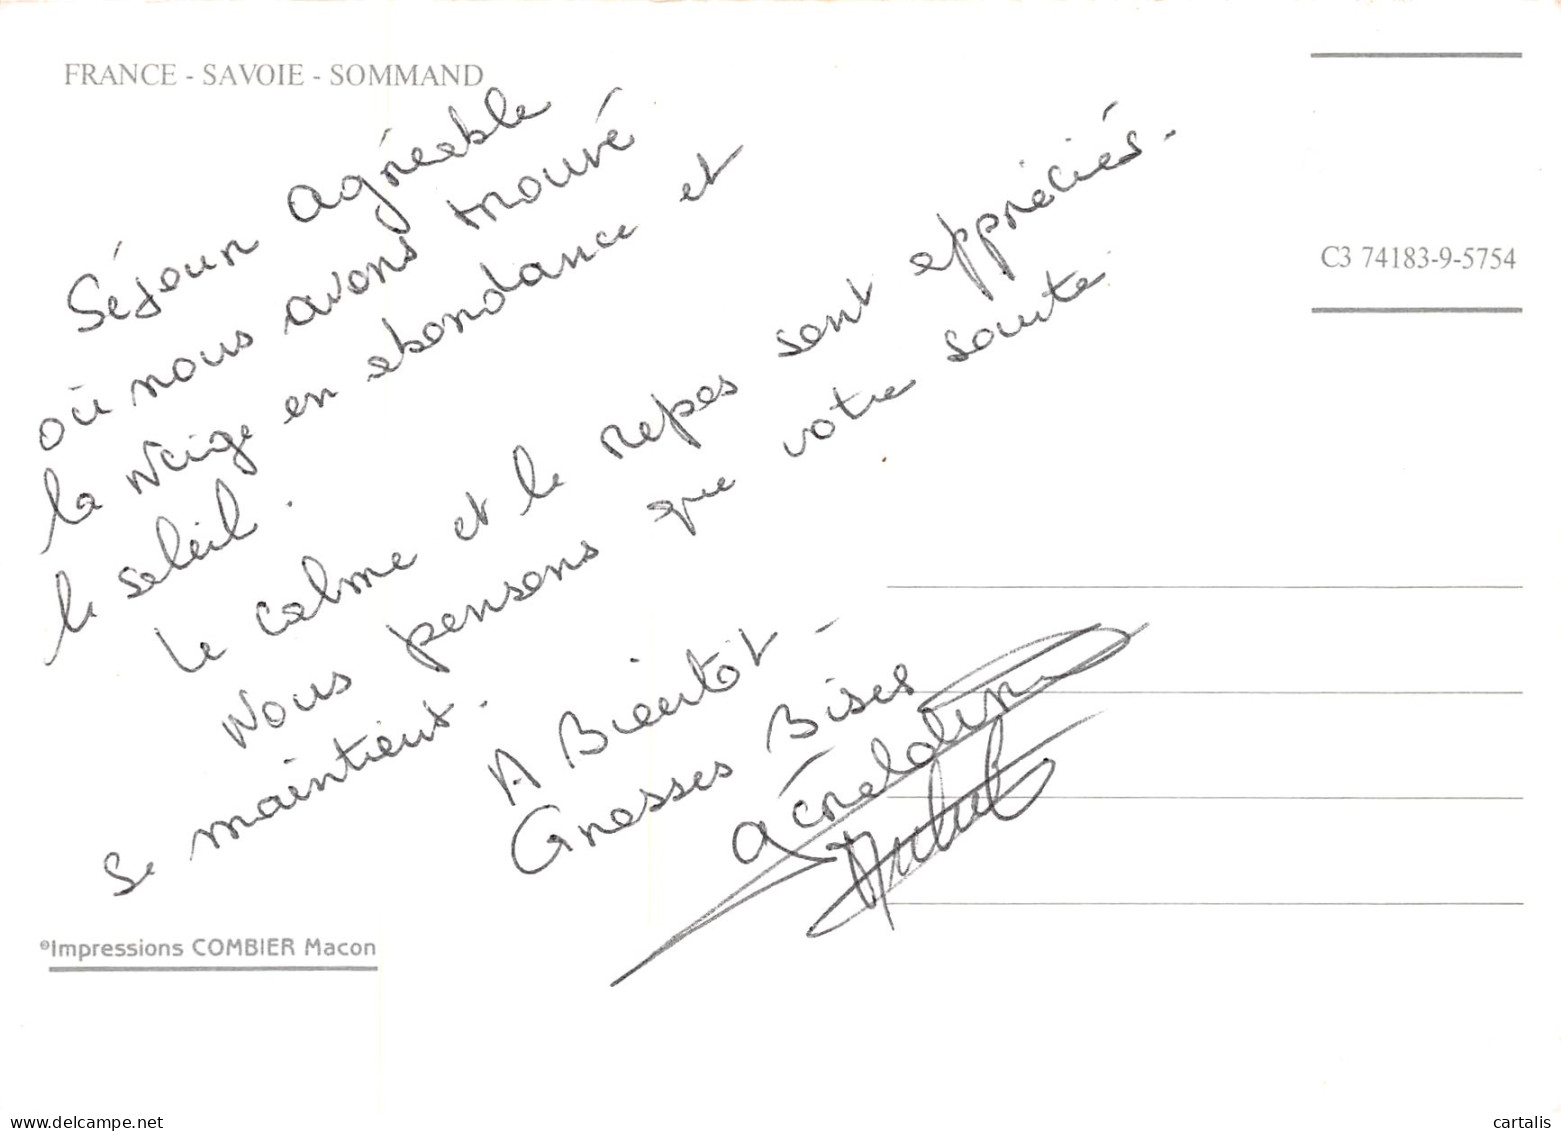 FRANCE - SAVOIE - SOMMAND
Séjour agréable
où nous avons trouvé
la Neige en abondance et
le soleil.
Le calme et le repos sont appréciés.
Nous pensons que votre santé
se maintient.
A Bientôt -
Grosses Bises
Géraldine
C3 74183-9-5754
Impressions COMBIER Macon
delcampe.net
cartalis